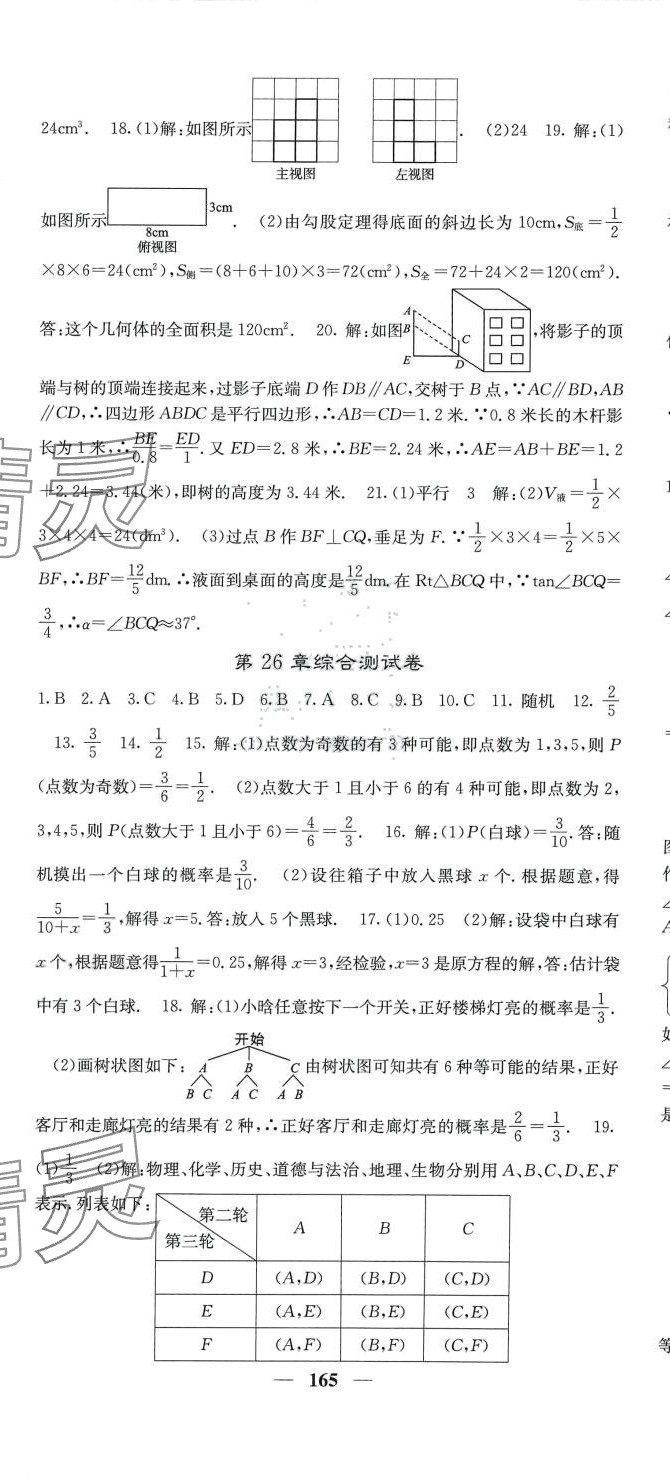 24cm³. 18.(1)解:如图所示 . (2)24 19. 解:(1)
主视图 左视图
如图所示 3cm . (2)由勾股定理得底面的斜边长为 10cm,S底=1/2
8cm
俯视图
×8×6=24(cm²),S侧=(8+6+10)×3=72(cm²),S全=72+24×2=120(cm²).
答:这个几何体的全面积是 120cm². 20. 解:如图 A B C E D ,将影子的顶
端与树的顶端连接起来,过影子底端 D 作 DB∥AC,交树于 B 点,∵AC∥BD,AB
∥CD,∴四边形 ABDC 是平行四边形,∴AB=CD=1.2 米.∵0.8 米长的木杆影
长为 1 米,∴BE/0.8=ED/1.又 ED=2.8 米,∴BE=2.24 米,∴AE=AB+BE=1.2
+2.24=3.44(米),即树的高度为 3.44 米. 21.(1)平行 3 解:(2)V液=1/2×
3×4×4=24(dm³). (3)过点 B 作 BF⊥CQ,垂足为 F.∵1/2×3×4=1/2×5×
BF,∴BF=12/5dm.∴液面到桌面的高度是12/5dm.在 Rt△BCQ 中,∵tan∠BCQ=
3/4,∴α=∠BCQ≈37°.
第 26 章综合测试卷
1.B 2.A 3.C 4.B 5.D 6.B 7.A 8.C 9.B 10.C 11.随机 12.2/5
13.3/5 14.1/2 15.解:(1)点数为奇数的有 3 种可能,即点数为 1,3,5,则 P
(点数为奇数)=3/6=1/2. (2)点数大于 1 且小于 6 的有 4 种可能,即点数为 2,
3,4,5,则 P(点数大于 1 且小于 6)=4/6=2/3. 16. 解:(1)P(白球)=3/10.答:随
机摸出一个白球的概率是3/10. (2)设往箱子中放入黑球 x 个.根据题意,得
5/(10+x)=1/3,解得 x=5.答:放入 5 个黑球. 17.(1)0.25 (2)解:设袋中白球有
x 个,根据题意得1/(1+x)=0.25,解得 x=3,经检验,x=3 是原方程的解,答:估计袋
中有 3 个白球. 18. 解:(1)小晗任意按下一个开关,正好楼梯灯亮的概率是1/3.
开始
(2)画树状图如下: A B C 由树状图可知共有 6 种等可能的结果,正好
B C A C A B
客厅和走廊灯亮的结果有 2 种,∴正好客厅和走廊灯亮的概率是2/6=1/3. 19.
(1)1/3 (2)解:物理、化学、历史、道德与法治、地理、生物分别用 A、B、C、D、E、F
表示,列表如下:
第二轮 A B C
第三轮
D (A,D) (B,D) (C,D)
E (A,E) (B,E) (C,E)
F (A,F) (B,F) (C,F)
— 165 —
精灵
精灵